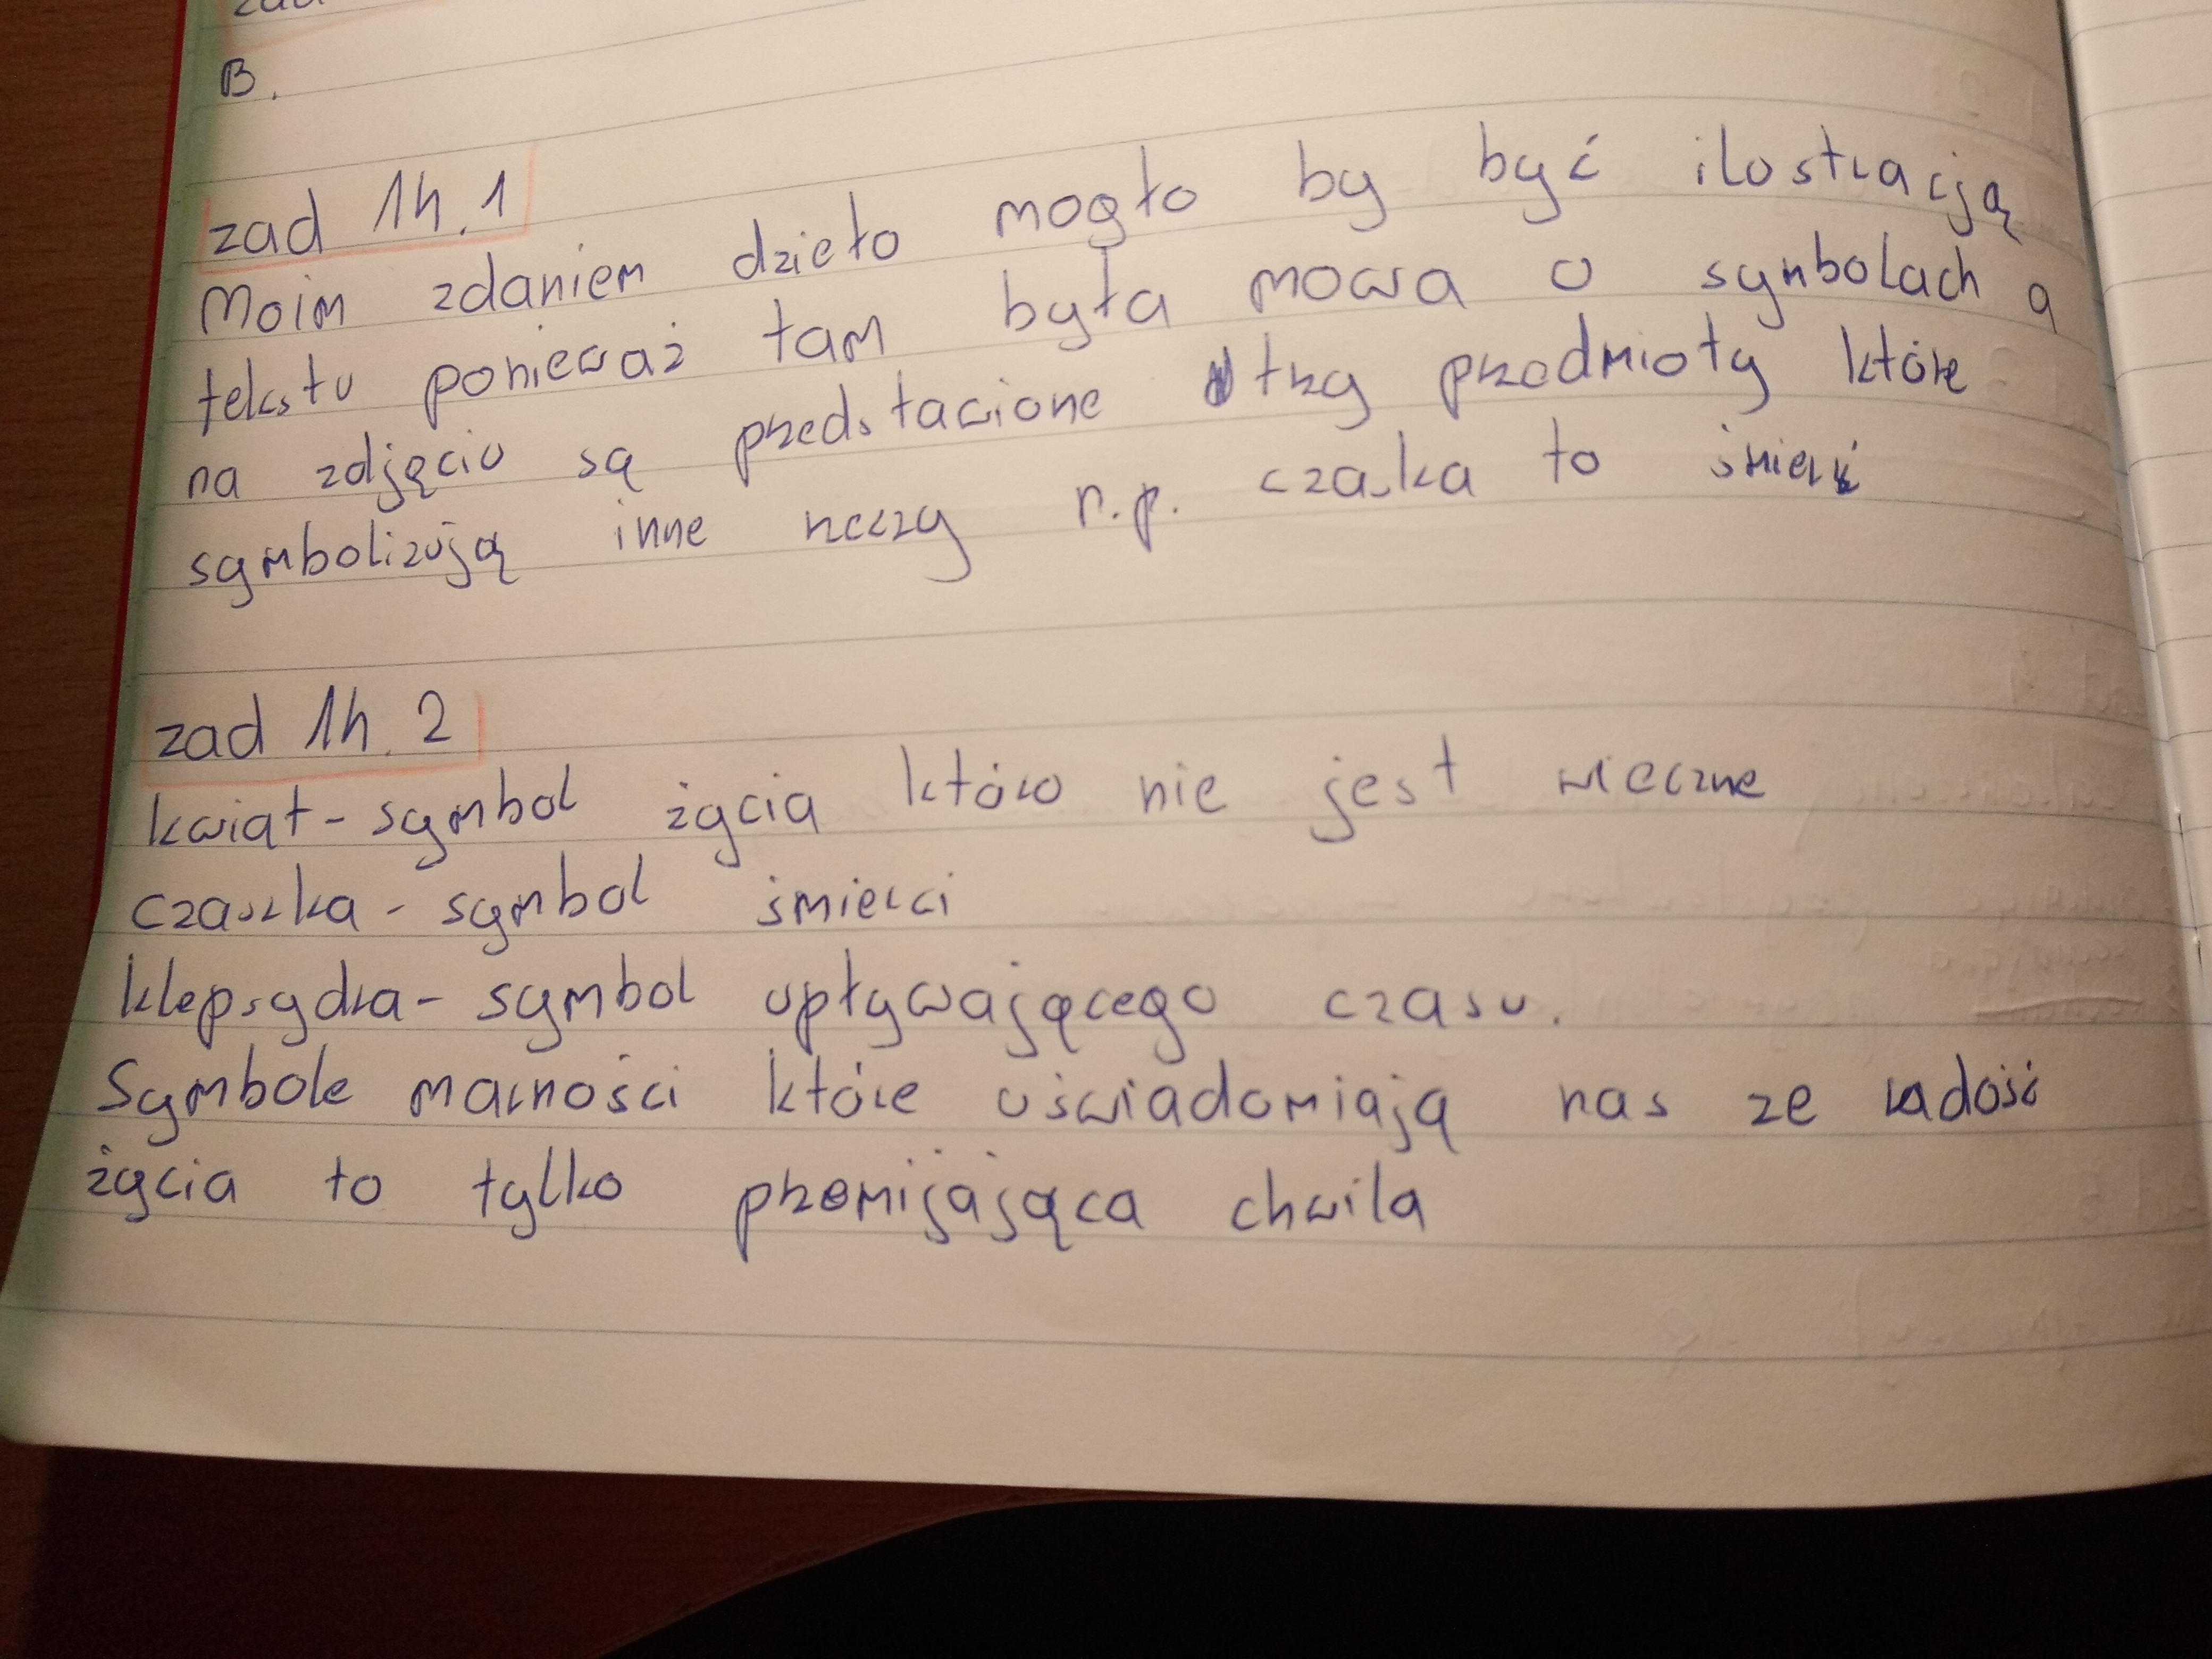 zad
B.
zad 14.1
Moim zdaniem dzieło mogło by być ilustracją
tekstu ponieważ tam była mowa o symbolach a
na zdjęciu są przedstawione trzy przedmioty które
symbolizują inne rzeczy n.p. czaska to śmierć
zad 14.2
kwiat - symbol życia któro nie jest wieczne
czaszka - symbol śmierci
klepsydra - symbol upływającego czasu.
Symbole marności które uświadomiają nas ze radość
życia to tylko przemijająca chwila